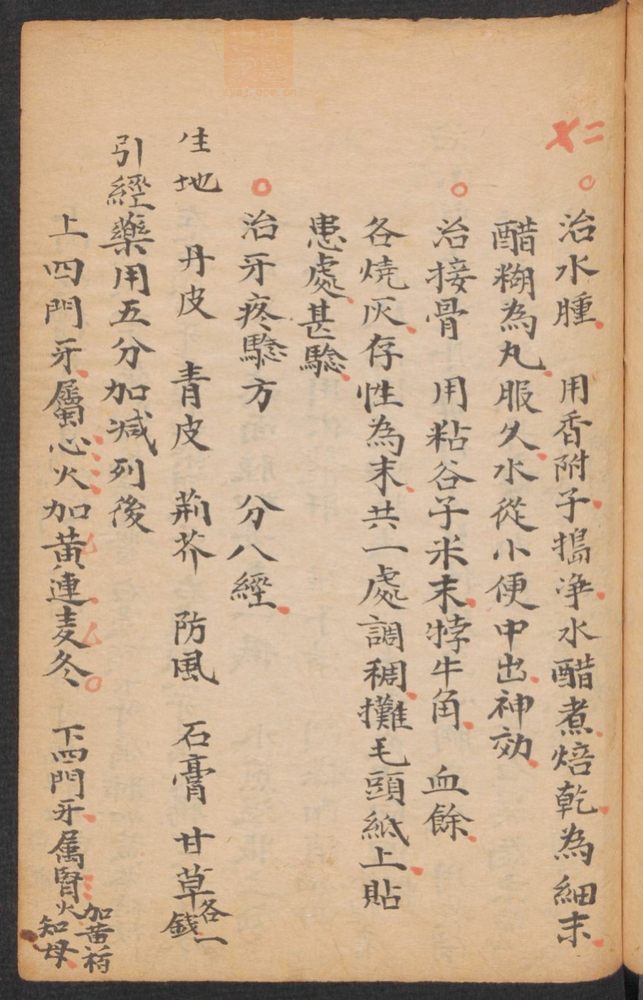 二
治水腫　用香附子搗净水醋煮焙乾為細末
醋糊為丸服久水從小便中出神効
治接骨　用粘谷子米末牸牛角　血餘
各燒灰存性為末共一處調稠攤毛頭紙上貼
患處甚騐
治牙疼騐方　分八經
生地　丹皮　青皮　荊芥　防風　石膏　甘草各一錢
引經藥用五分加减列後
上四門牙屬心火加黄連麦冬　下四門牙属腎火加黄栢知母